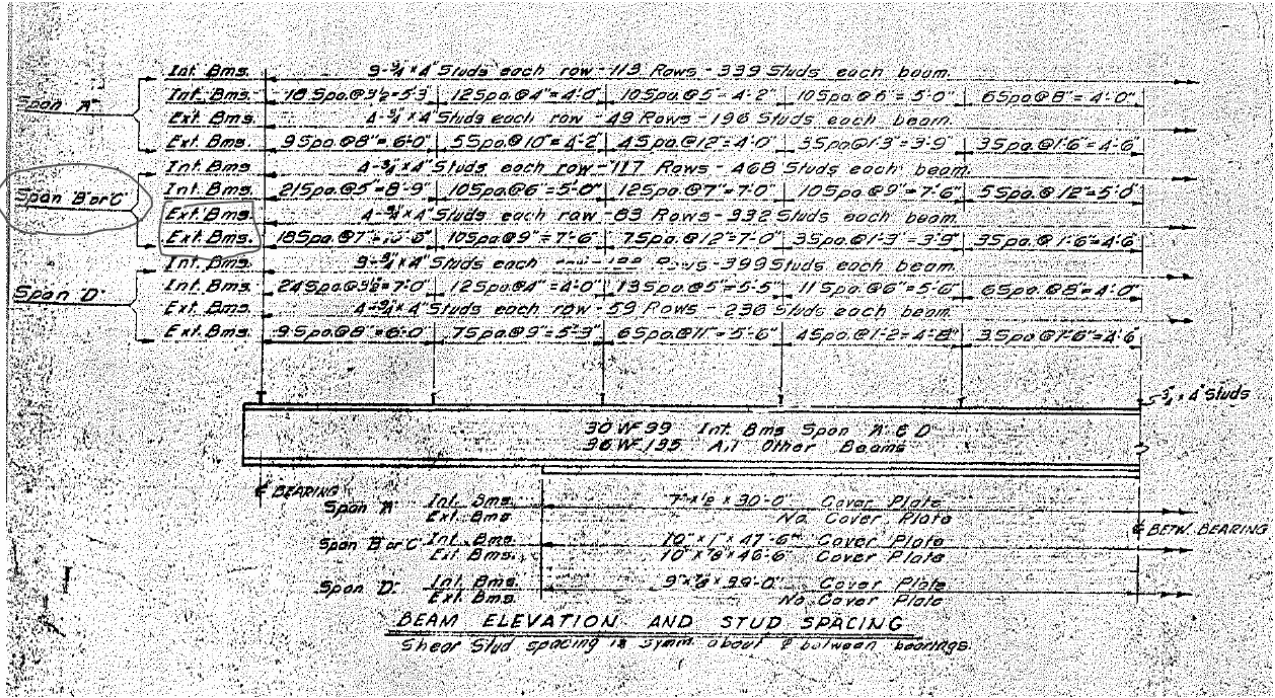 Int. Bms. 3-¾"x4" Studs each row-113 Rows-339 Studs each beam.
Span "A" Int. Bms. 18 Spa.@3½=5'-3" 12 Spa.@4"=4'-0" 10 Spa.@5"=4'-2" 10 Spa.@6"=5'-0" 6 Spa.@8"=4'-0"
Ext. Bms. 4-¾"x4" Studs each row-49 Rows-196 Studs each beam.
Ext. Bms. 9 Spa.@8"=6'-0" 5 Spa.@10"=4'-2" 4 Spa.@12"=4'-0" 3 Spa.@1'-3"=3'-9" 3 Spa.@1'-6"=4'-6"
Int. Bms. 4-¾"x4" Studs each row-117 Rows-468 Studs each beam.
Span "B" or "C" Int. Bms. 21 Spa.@5"=8'-9" 10 Spa.@6"=5'-0" 12 Spa.@7"=7'-0" 10 Spa.@9"=7'-6" 5 Spa.@12"=5'-0"
Ext. Bms. 4-¾"x4" Studs each row-83 Rows-332 Studs each beam.
Ext. Bms. 18 Spa.@7"=10'-6" 10 Spa.@9"=7'-6" 7 Spa.@12"=7'-0" 3 Spa.@1'-3"=3'-9" 3 Spa.@1'-6"=4'-6"
Int. Bms. 3-¾"x4" Studs each Rows-399 Studs each beam.
Span "D" Int. Bms. 24 Spa.@3½=7'-0" 12 Spa.@4"=4'-0" 13 Spa.@5"=5'-5" 11 Spa.@6"=5'-6" 6 Spa.@8"=4'-0"
Ext. Bms. 4-¾"x4" Studs each row-59 Rows-236 Studs each beam.
Ext. Bms. 9 Spa.@8"=6'-0" 7 Spa.@9"=5'-3" 6 Spa.@11"=5'-6" 4 Spa.@1'-2=4'-8" 3 Spa.@1'-6"=4'-6"
¾"x4" Studs
30 WF 99 Int. Bms Span "A" & "D"
36 WF 135 All Other Beams
℄ BEARING
Span "A" Int. Bms. 7"x½"x30'-0" Cover Plate
Ext. Bms. No Cover Plate
℄ BETW. BEARING
Span "B" or "C" Int. Bms. 10"x1"x47'-6" Cover Plate
Ext. Bms. 10"x⅞"x46'-6" Cover Plate
Span "D" Int. Bms. Cover Plate
Ext. Bms. No Cover Plate
BEAM ELEVATION AND STUD SPACING
Shear Stud spacing is symm. about ℄ between bearings.